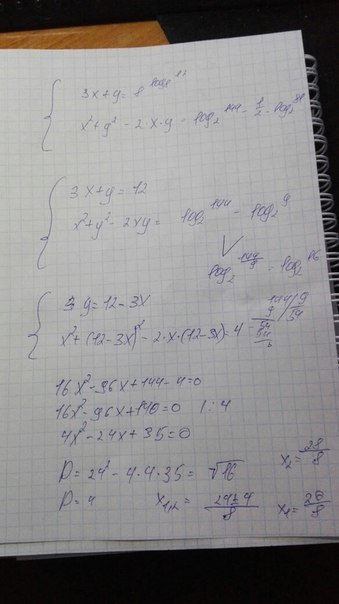 3x+y = 8^log₈12
x²+y² - 2·x·y = log₂144 - 1/2 · log₂81
3x+y = 12
x²+y² - 2xy = log₂144 - log₂9
log₂144/9 = log₂16
3y = 12-3x
x²+(12-3x)² - 2·x·(12-3x) = 4
16x² - 96x + 144 - 4 = 0
16x² - 96x + 140 = 0 | : 4
4x² - 24x + 35 = 0
D = 24² - 4·4·35 = √16
x₂ = 28/8
D = 4
x₁,₂ = 24±4/8
x₁ = 20/8